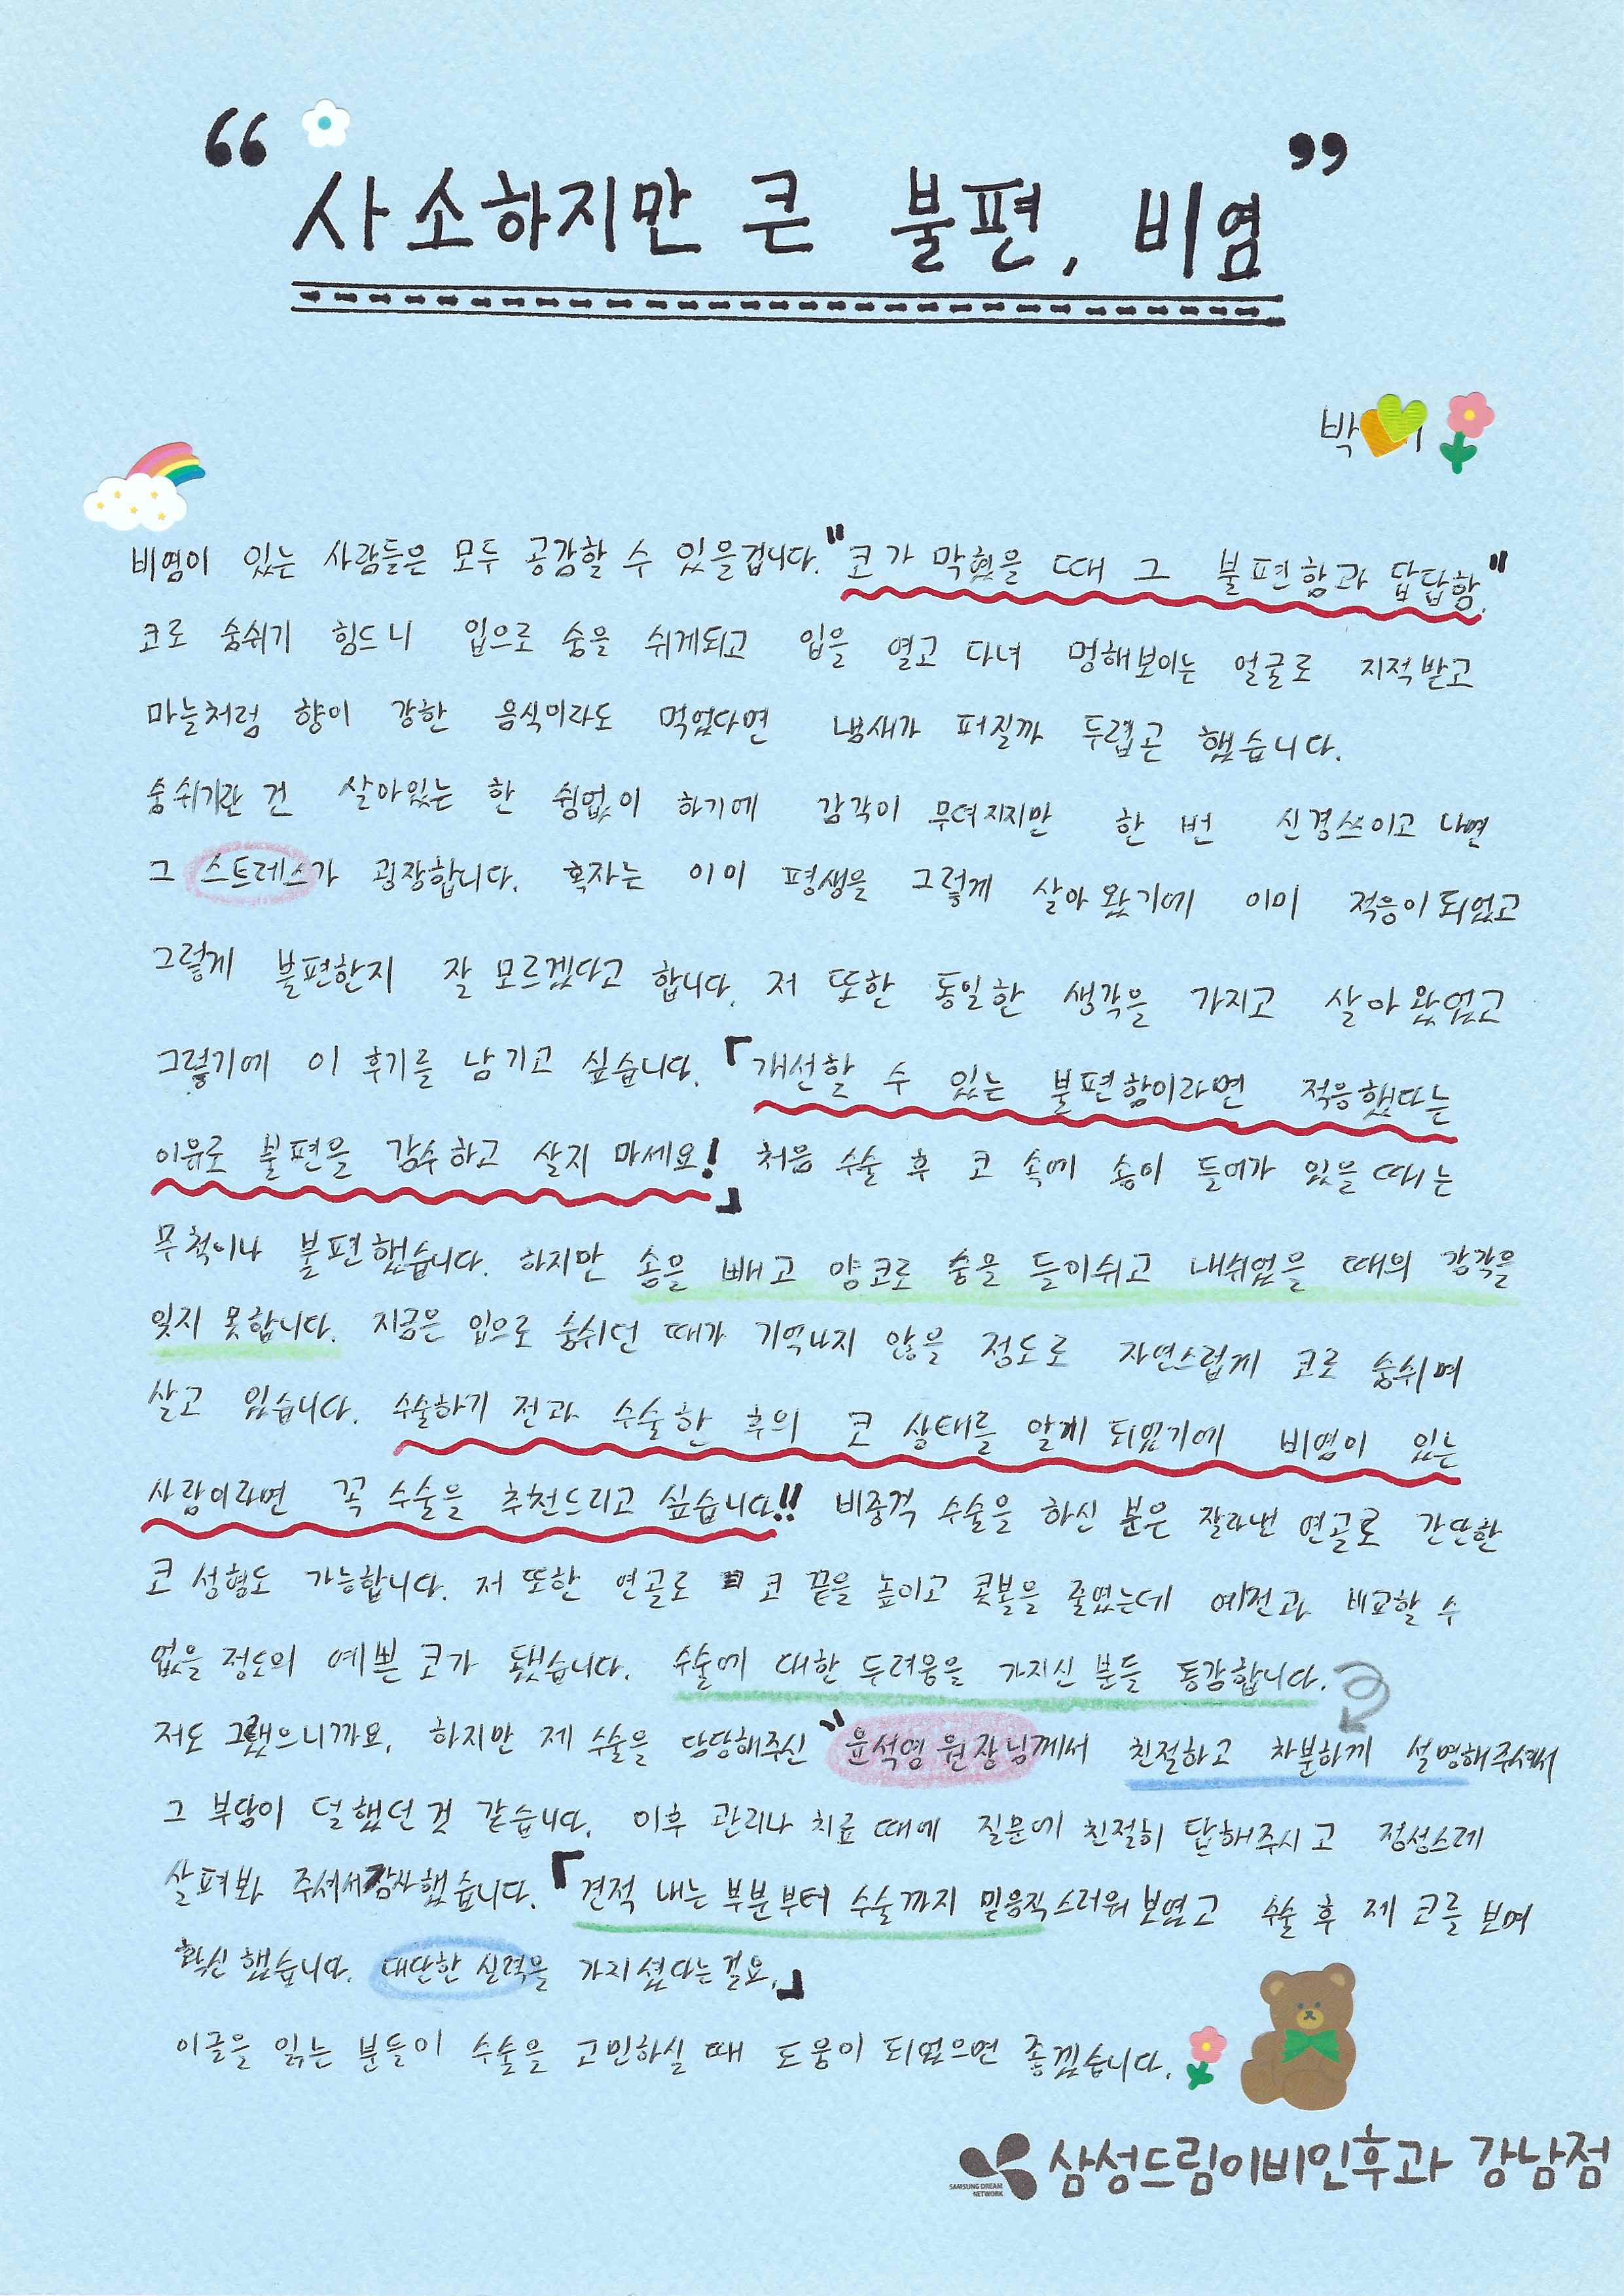 “ 사소하지만 큰 불편, 비염 ”
박
비염이 있는 사람들은 모두 공감할 수 있을겁니다. "코가 막혔을 때 그 불편함과 답답함."
코로 숨쉬기 힘드니 입으로 숨을 쉬게되고 입을 열고 다녀 멍해보이는 얼굴로 지적받고
마늘처럼 향이 강한 음식이라도 먹었다면 냄새가 퍼질까 두렵곤 했습니다.
숨쉬기란 건 살아있는 한 쉼없이 하기에 감각이 무뎌지지만 한 번 신경쓰이고 나면
그 스트레스가 굉장합니다. 혹자는 이미 평생을 그렇게 살아 왔기에 이미 적응이 되었고
그렇게 불편한지 잘 모르겠다고 합니다. 저 또한 동일한 생각을 가지고 살아 왔었고
그렇기에 이 후기를 남기고 싶습니다. 「개선할 수 있는 불편함이라면 적응했다는
이유로 불편을 감수하고 살지 마세요!」 처음 수술 후 코 속에 솜이 들어가 있을 때는
무척이나 불편했습니다. 하지만 솜을 빼고 양코로 숨을 들이쉬고 내쉬었을 때의 감각을
잊지 못합니다. 지금은 입으로 숨쉬던 때가 기억나지 않을 정도로 자연스럽게 코로 숨쉬며
살고 있습니다. 수술하기 전과 수술한 후의 코 상태를 알게 되었기에 비염이 있는
사람이라면 꼭 수술을 추천드리고 싶습니다!! 비중격 수술을 하신 분은 잘라낸 연골로 간단한
코 성형도 가능합니다. 저 또한 연골로 코 끝을 높이고 콧볼을 줄였는데 예전과 비교할 수
없을 정도의 예쁜 코가 됐습니다. 수술에 대한 두려움을 가지신 분들 동감합니다.
저도 그랬으니까요. 하지만 제 수술을 담당해주신 "윤석영 원장님께서 친절하고 차분하게 설명해주셔서
그 부담이 덜 했던 것 같습니다. 이후 관리나 치료 때에 질문에 친절히 답해주시고 정성스레
살펴봐 주셔서 감사했습니다. 「견적 내는 부분부터 수술까지 믿음직스러워 보였고 수술 후 제 코를 보며
확신 했습니다. 대단한 실력을 가지셨다는걸요.」
이글을 읽는 분들이 수술을 고민하실 때 도움이 되었으면 좋겠습니다.
SAMSUNG DREAM
NETWORK
삼성드림이비인후과 강남점